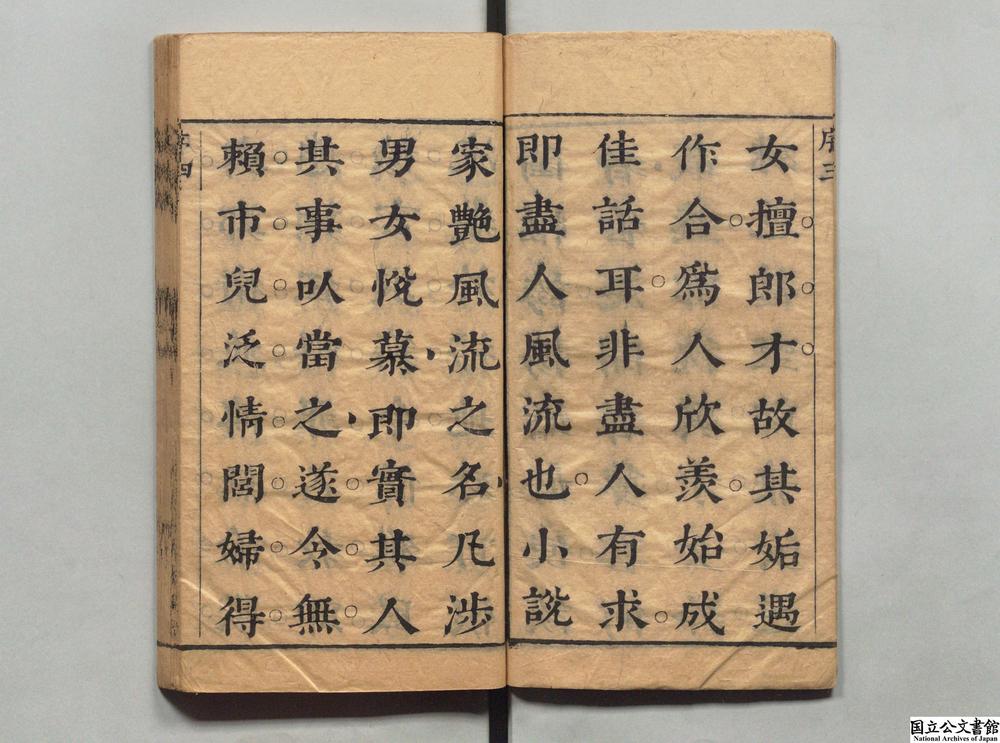 序三
女擅郎才故其姤遇
作合爲人欣羨始成
佳話耳非盡人有求
即盡人風流也小說
家艷風流之名凡涉
男女悅慕即實其人
其事以當之遂令無
賴市兒泛情閭婦得
序四
国立公文書館
National Archives of Japan